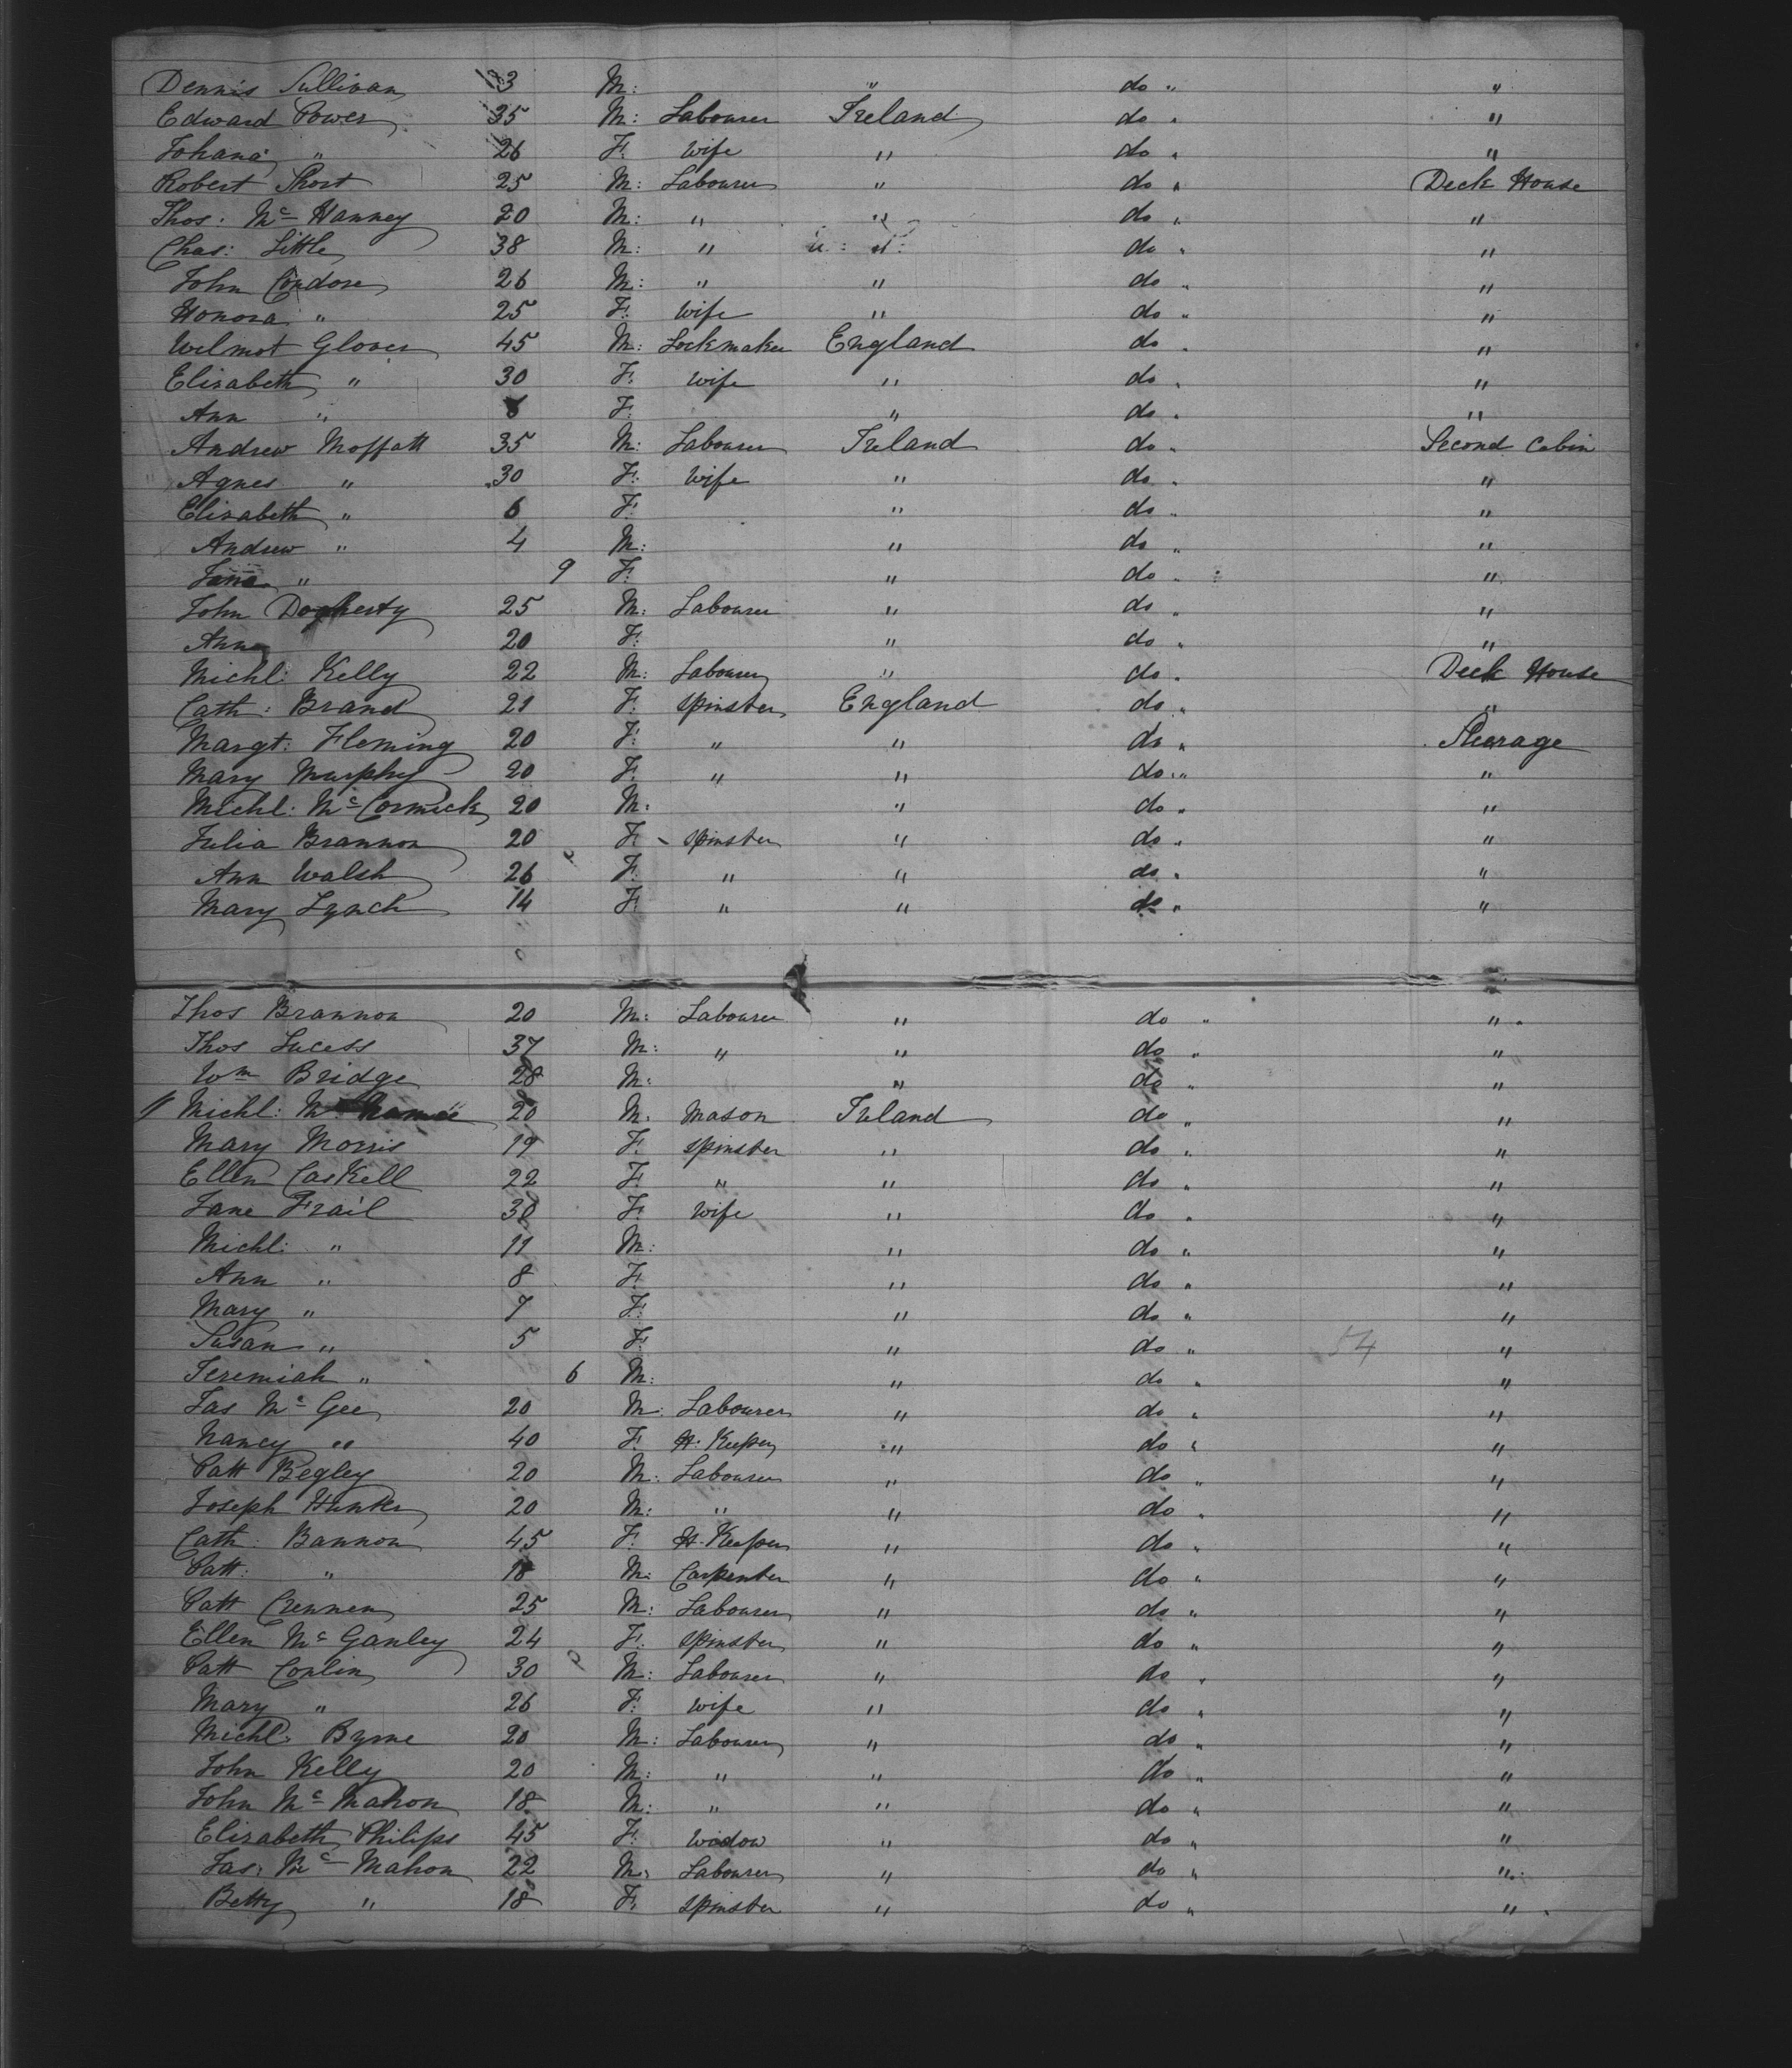 Dennis Sullivan 23 M: " do " "
Edward Power 35 M: Labourer Ireland do " "
Johana " 26 F. Wife " do " "
Robert Short 25 M: Labourer " do " Deck House
Thos: Mc Hanney 20 M: " " do " "
Chas: Little 38 M: " U: S: do " "
John Condore 26 M: " " do " "
Honora " 25 F. Wife " do " "
Wilmot Glover 45 M: Lockmaker England do " "
Elizabeth " 30 F. Wife " do " "
Ann " F: " do " "
Andrew Moffatt 35 M: Labourer Ireland do " Second Cabin
Agnes " 30 F. Wife " do " "
Elizabeth " 6 F: " do " "
Andrew " 4 M: " do " "
Jane " 9 F: " do " "
John Dogherty 25 M: Labourer " do " "
Ann 20 F: " do " "
Michl: Kelly 22 M: Labourer " do " Deck House
Cath: Brand 21 F: Spinster England do " "
Margt: Fleming 20 F: " " do " Steerage
Mary Murphy 20 F. " " do " "
Michl: Mc Cormick 20 M: " do " "
Julia Brannon 20 F Spinster " do " "
Ann Walsh 26 F. " " do " "
Mary Lynch 14 F. " " do " "
Thos Brannon 20 M: Labourer " do " "
Thos Lucess 37 M: " " do " "
Wm Bridge 28 M: " do " "
Michl: Mc Namee 20 M. Mason Ireland do " "
Mary Morris 19 F. Spinster " do " "
Ellen Caskell 22 F. " " do " "
Jane Frail 30 F. Wife " do " "
Michl: " 11 M: " do " "
Ann " 8 F: " do " "
Mary " 7 F: " do " "
Susan " 5 F. " do " 54 "
Jeremiah " 6 M: " do " "
Jas Mc Gee 20 M: Labourer " do " "
Nancy " 40 F. H. Keeper " do " "
Patt Begley 20 M: Labourer " do " "
Joseph Hunter 20 M: " " do " "
Cath: Bannon 45 F. H. Keeper " do " "
Patt: " 18 M: Carpenter " do " "
Patt Crennen 25 M: Labourer " do " "
Ellen Mc Ganley 24 F. Spinster " do " "
Patt Conlin 30 M: Labourer " do " "
Mary " 26 F. Wife " do " "
Michl: Byrne 20 M: Labourer " do " "
John Kelly 20 M: " " do " "
John Mc Mahon 18 M: " " do " "
Elizabeth Philips 45 F. Widow " do " "
Jas: Mc Mahon 22 M: Labourer " do " "
Betty " 18 F. Spinster " do " "